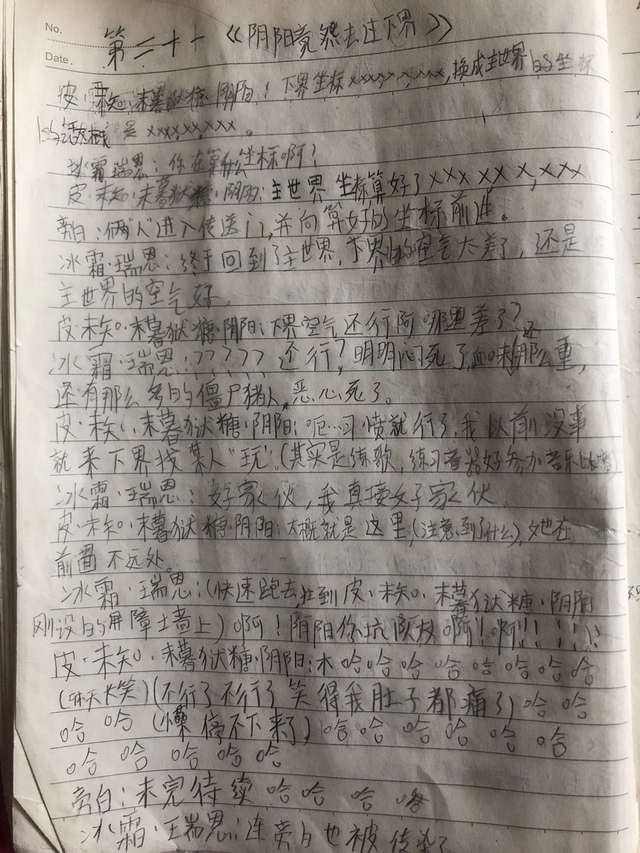 No.
Date.
第二十一《阴阳竟然去过下界》
皮·未知·末暮狱糖·阴阳：下界坐标xxx,x,xxx,换成主世界的坐标
的话应该是xxxxxxxxx。
冰霜·瑞恩：你在算什么坐标啊？
皮·未知·末暮狱糖·阴阳：主世界坐标算好了xxx,xx,x,xxx
旁白：俩“人”进入传送门，并向算好的坐标前进。
冰霜·瑞恩：终于回到了主世界，下界的空气太差了，还是
主世界的空气好。
皮·未知·末暮狱糖·阴阳：下界空气还行阿哪里差了？
冰霜·瑞恩：？？？？？还行？明明闷死了血味还那么重，
还有那么多的僵尸猪人，恶心死了。
皮·未知·末暮狱糖·阴阳：呃…习惯就行了，我以前没事
就来下界找某人“玩”（其实是练歌，练习音器好参加音乐比赛）
冰霜·瑞恩：好家伙，我直接好家伙
皮·未知·末暮狱糖·阴阳：大概就是这里，（注意到了什么），她在
前面不远处。
冰霜·瑞恩：（快速跑去，撞到皮·未知·末暮狱糖·阴阳
刚设的屏障土墙上）啊！阴阳你坑队友啊！啊！！！！！
皮·未知·末暮狱糖·阴阳：木哈哈哈哈哈哈哈哈
（仰天长笑）（不行了不行了笑得我肚子都痛了）哈哈
哈哈（停不下来了）哈哈哈哈哈哈
哈哈哈哈哈哈
旁白：未完待续哈哈哈咯
冰霜·瑞恩：连旁白也被传染了